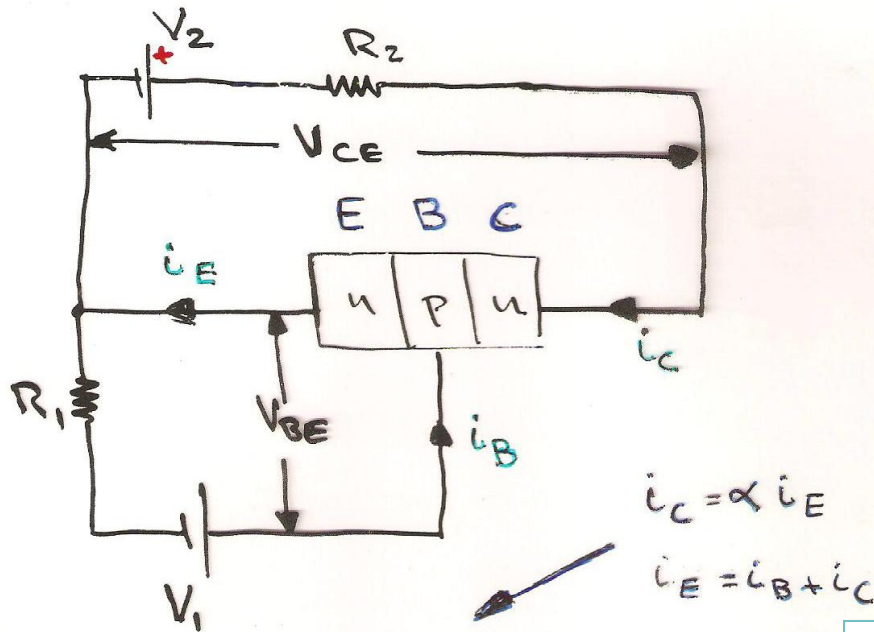 V2
+
R2
VCE
E B C
iE
n p n
iC
R1
VBE
iB
iC = α iE
V1
iE = iB + iC